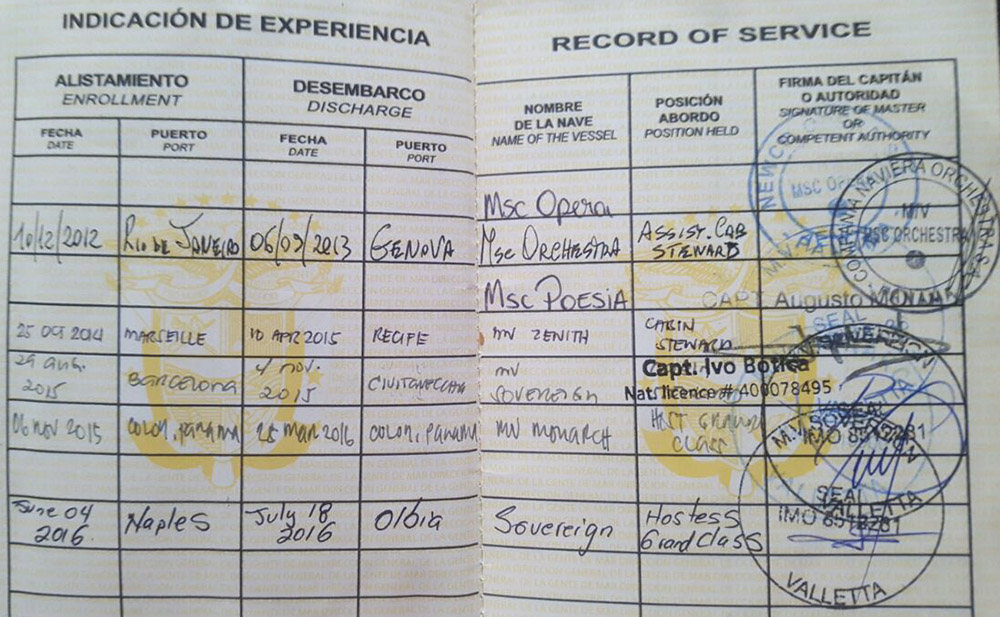 INDICACIÓN DE EXPERIENCIA
RECORD OF SERVICE
ALISTAMIENTO
ENROLLMENT
DESEMBARCO
DISCHARGE
NOMBRE
DE LA NAVE
NAME OF THE VESSEL
POSICIÓN
ABORDO
POSITION HELD
FIRMA DEL CAPITÁN
O AUTORIDAD
SIGNATURE OF MASTER
OR
COMPETENT AUTHORITY
FECHA
DATE
PUERTO
PORT
FECHA
DATE
PUERTO
PORT
Msc Opera
MSC Opera
10/12/2012 RIO DE JANEIRO 06/09/2013 GENOVA Msc ORCHESTRA ASSIST. CAB
STEWARD
COMPAÑIA NAVIERA ORCHESTRA S.A.
M/V
MSC ORCHESTRA
Msc POESIA
CAPT Augusto
SEAL
25 OCT 2014 MARSEILLE 10 APR 2015 RECIFE MV ZENITH CABIN
STEWARD
29 aug.
2015 BARCELONA 4 nov.
2015 CIVITAVECCHIA MV
SOVEREIGN
Capt. Ivo Botica
Nat. licence # 400078495
06 NOV 2015 COLON, PANAMA 25 MAR 2016 COLON, PANAMA MV MONARCH HOST GRAND
CLASS
M.V. SOVEREIGN
SEAL
VALLETTA
IMO 8512281
June 04
2016 Naples July 18
2016 Olbia Sovereign Hostess
Grand Class
VALLETTA